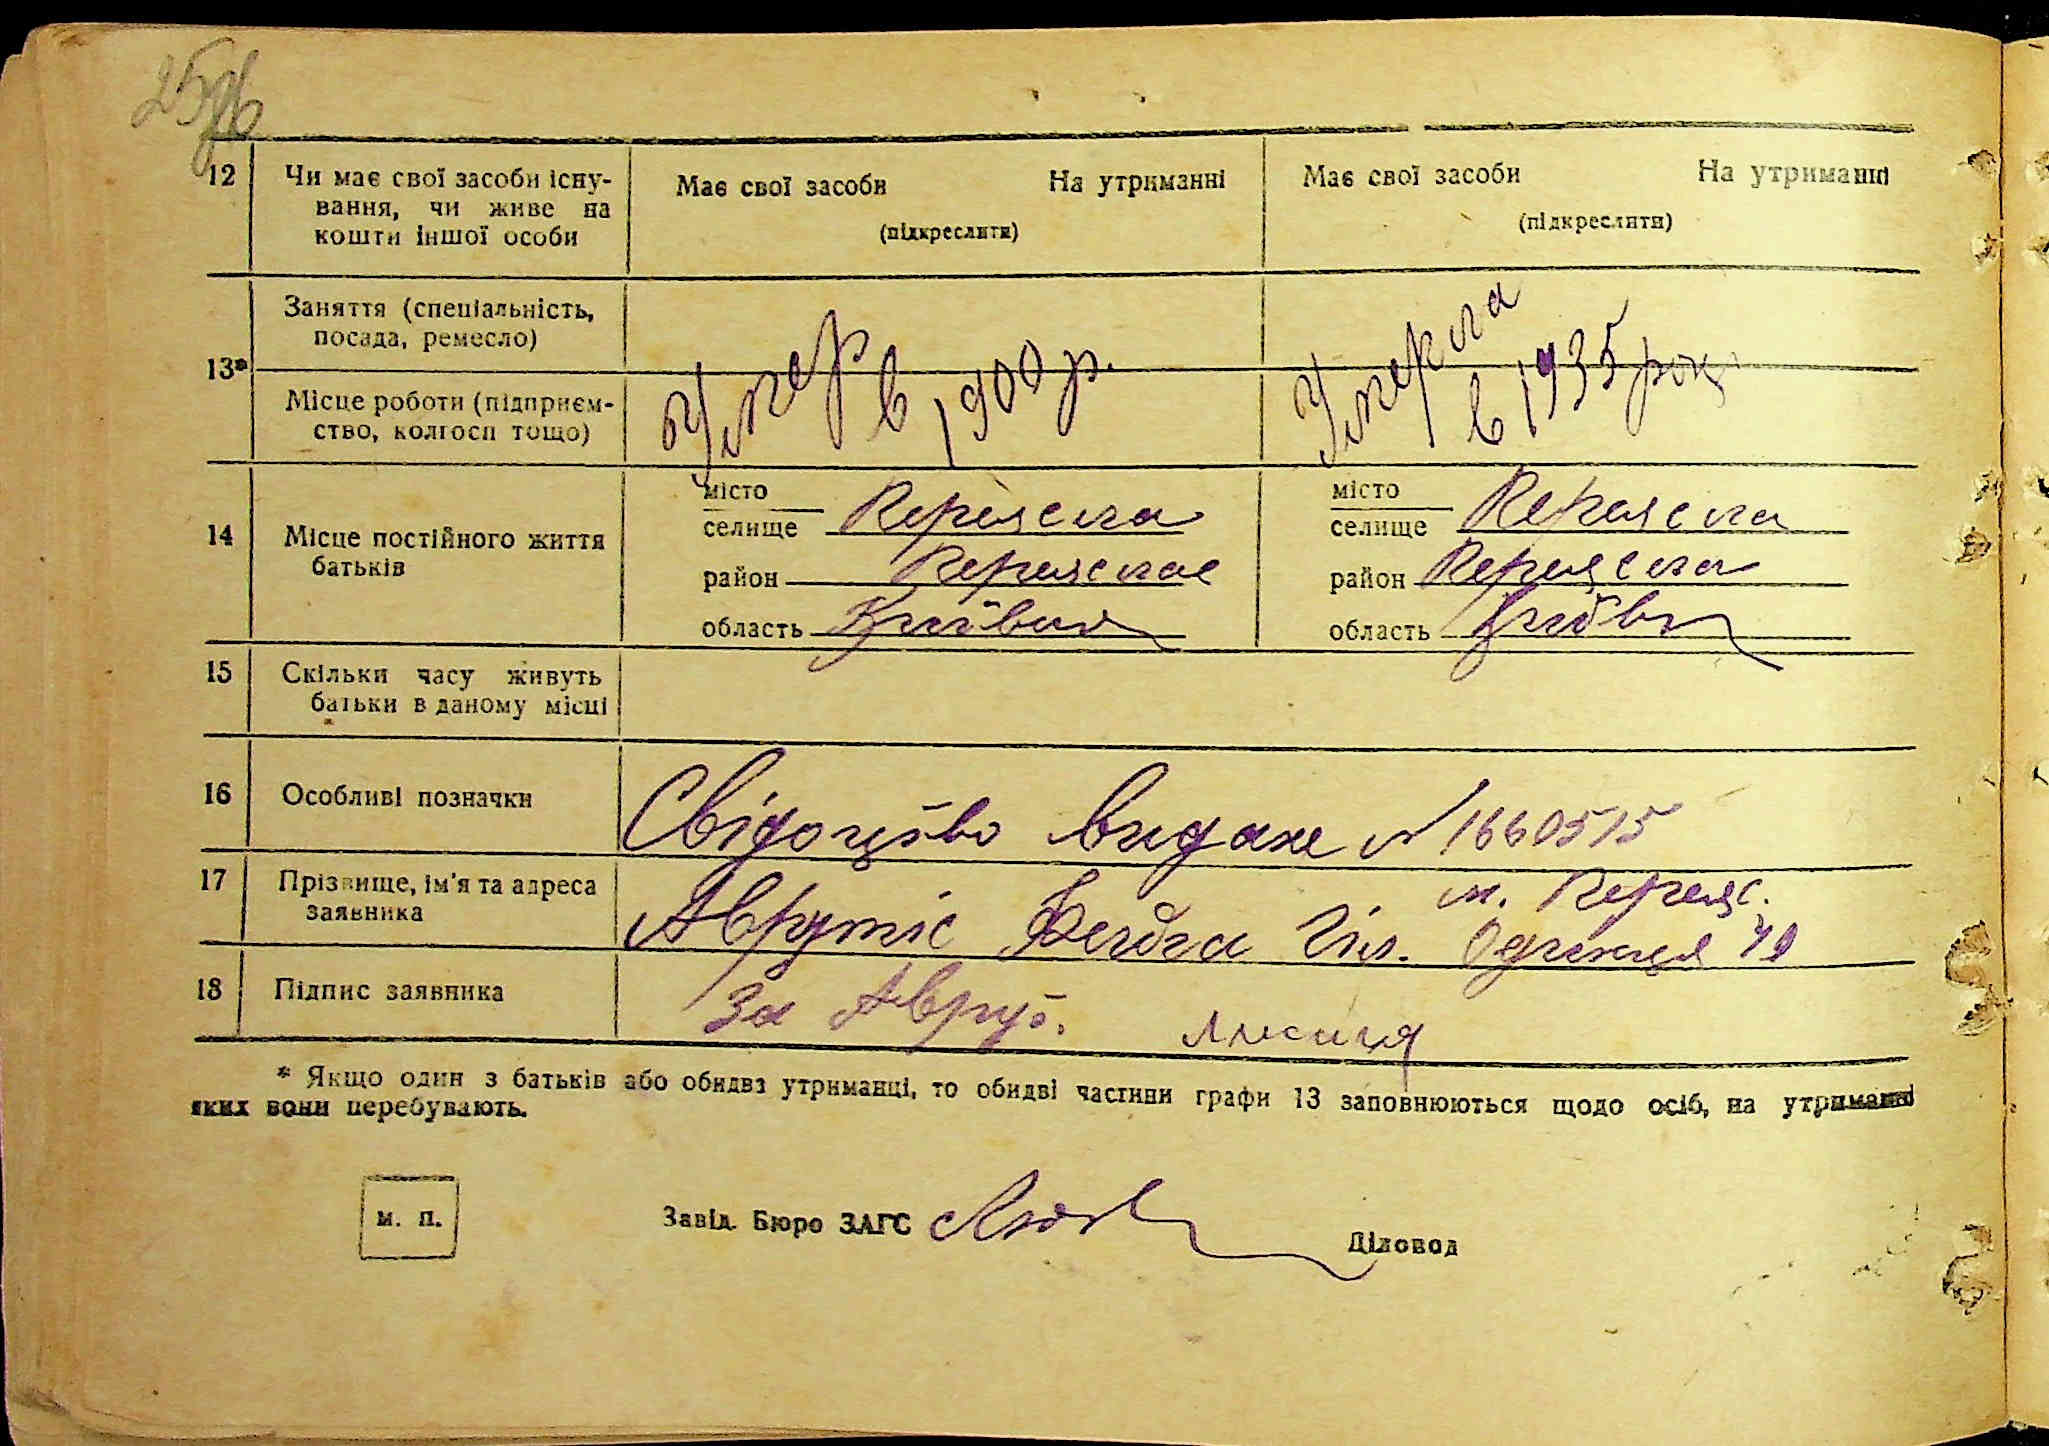 25
12 Чи має свої засоби існу-
вання, чи живе на
кошти іншої особи
Має свої засоби На утриманні
(підкреслити)
Має свої засоби На утриманні
(підкреслити)
13*
Заняття (спеціальність,
посада, ремесло)
Місце роботи (підприєм-
ство, колгосп тощо)
Умер
в 1900 р.
Умерла
в 1935 році
14 Місце постійного життя
батьків
місто
селище Переяслав
район Переяслав
область Київська
місто
селище Переяслав
район Переяслав
область Київськ
15 Скільки часу живуть
батьки в даному місці
16 Особливі позначки
Свідоцтво видане № 1660515
17 Прізвище, ім'я та адреса
заявника
м. Переяс.
Аврутіс
18 Підпис заявника
За Аврут.
* Якщо один з батьків або обидва утриманці, то обидві частини графи 13 заповнюються щодо осіб, на утриманні
яких вони перебувають.
м. п.
Завід. Бюро ЗАГС
Діловод